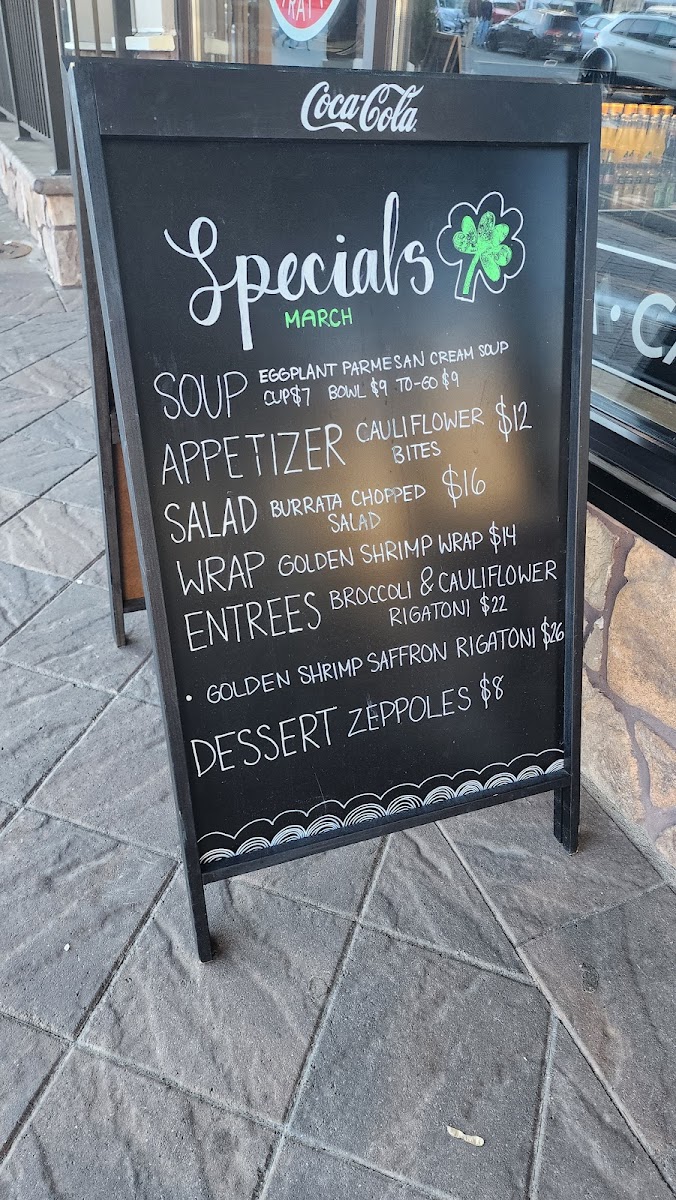 TRATT
Coca-Cola
Specials
MARCH
SOUP EGGPLANT PARMESAN CREAM SOUP
CUP $7 BOWL $9 TO-GO $9
APPETIZER CAULIFLOWER $12
BITES
SALAD BURRATA CHOPPED $16
SALAD
WRAP GOLDEN SHRIMP WRAP $14
ENTREES BROCCOLI & CAULIFLOWER
RIGATONI $22
• GOLDEN SHRIMP SAFFRON RIGATONI $26
DESSERT ZEPPOLES $8